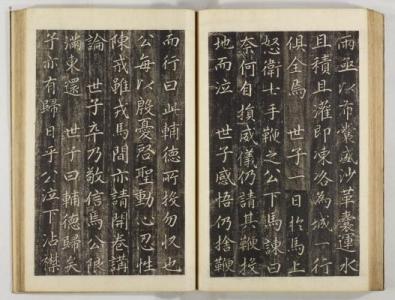 雨亟以布囊盛沙革囊運水
且積且灌即凍冱為城一行
俱全焉 世子一日於馬上
怒衛士手鞭之公下馬諫曰
奈何自損威儀仍請其鞭投
地而泣 世子感悟仍捨鞭
而行曰此輔德所投勿收也
公每以殷憂啓聖動心忍性
陳戒雖戎馬間亦請開卷講
論 世子卒乃敬信焉公俱
滿東還 世子曰輔德歸矣
子亦有歸日乎公泣下沾襟